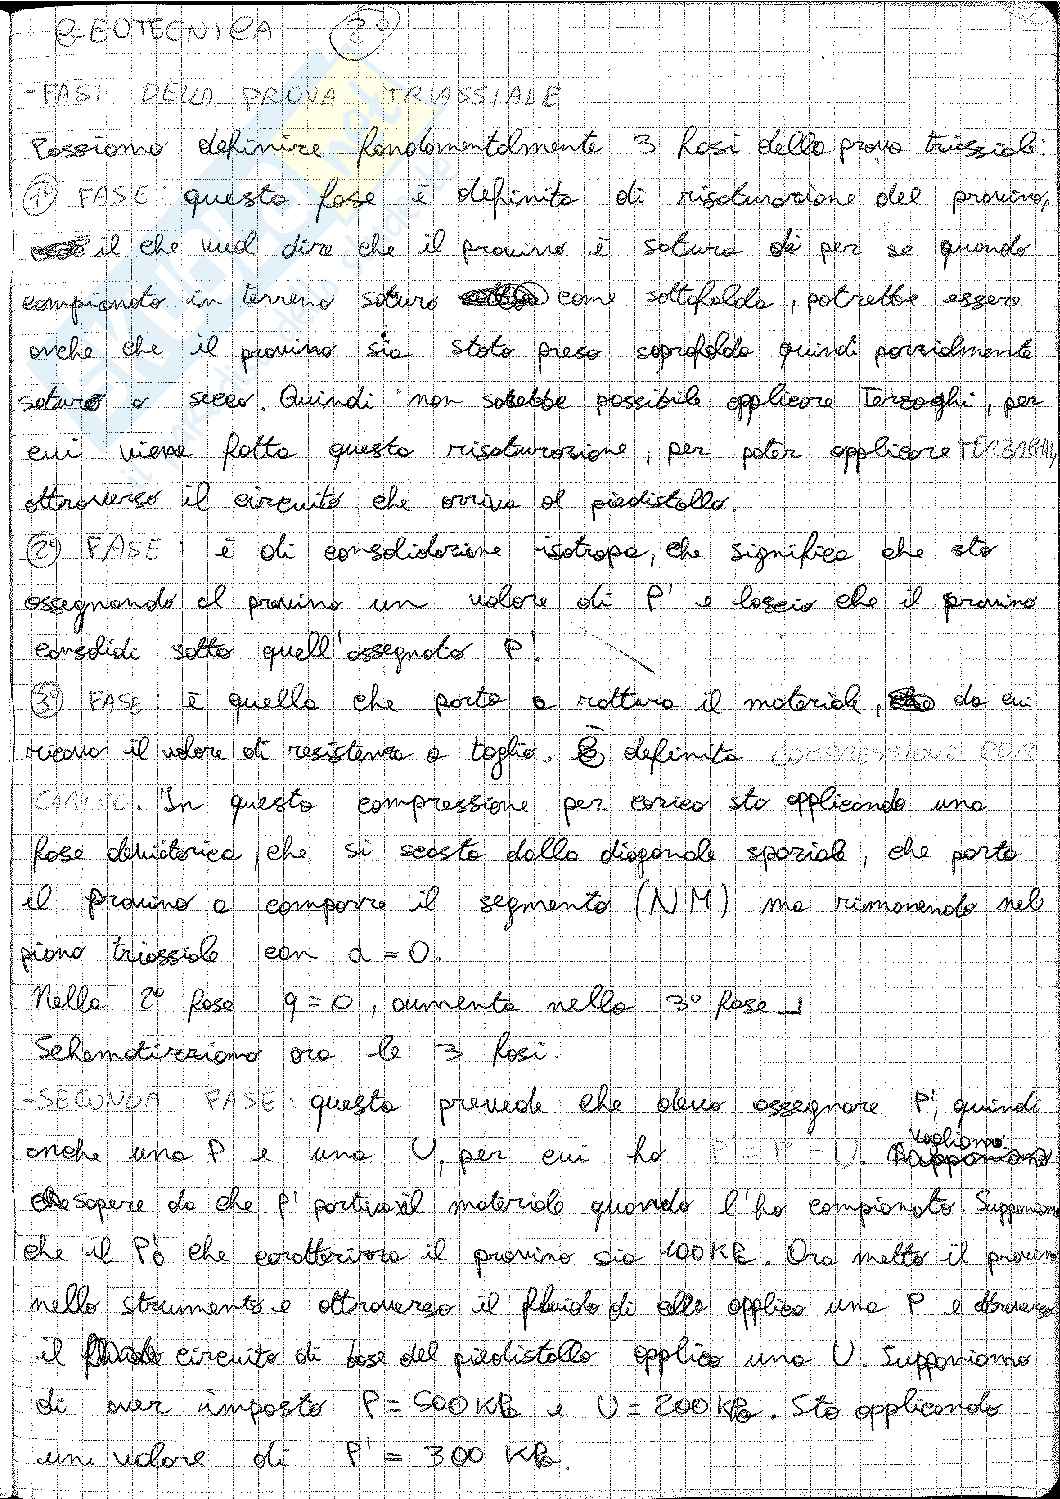 GEOTECNICA 2°
- FASI DELLA PROVA TRIASSIALE
Possiamo definire fondamentalmente 3 fasi della prova triassiale:
1° FASE: questa fase è definita di risaturazione del provino,
il che vuol dire che il provino è saturo di per sé quando
campionato in terreno saturo come sottofalda, potrebbe essere
anche che il provino sia stato preso soprafalda quindi parzialmente
saturo o secco. Quindi non sarebbe possibile applicare Terzaghi, per
cui viene fatta questa risaturazione, per poter applicare TERZAGHI,
attraverso il circuito che arriva al piedistallo.
2° FASE: è di consolidazione isotropa, che significa che sto
assegnando al provino un valore di P' e lascio che il provino
consolidi sotto quell'assegnato P'.
3° FASE: è quella che porta a rottura il materiale, da cui
ricavo il valore di resistenza a taglio. È definita COMPRESSIONE PER
CARICO. In questa compressione per carico sto applicando una
fase deviatorica, che si scosta dalla diagonale spaziale, che porta
il provino a comporre il segmento (NM) ma rimanendo nel
piano triassiale con α = 0.
Nella 2° fase q = 0, aumenta nella 3° fase
Schematizziamo ora le 3 fasi.
- SECONDA FASE: questa prevede che devo assegnare P', quindi
anche una P e una U, per cui ho P' = P - U. Vogliamo
sapere da che P' partiva il materiale quando l'ho campionato. Supponiamo
che il P'o che caratterizza il provino sia 100 KPa. Ora metto il provino
nello strumento e attraverso il fluido di cella applico una P e attraverso
il circuito di base del piedistallo applico una U. Supponiamo
di aver imposto P = 500 KPa e U = 200 KPa. Sto applicando
un valore di P' = 300 KPa.